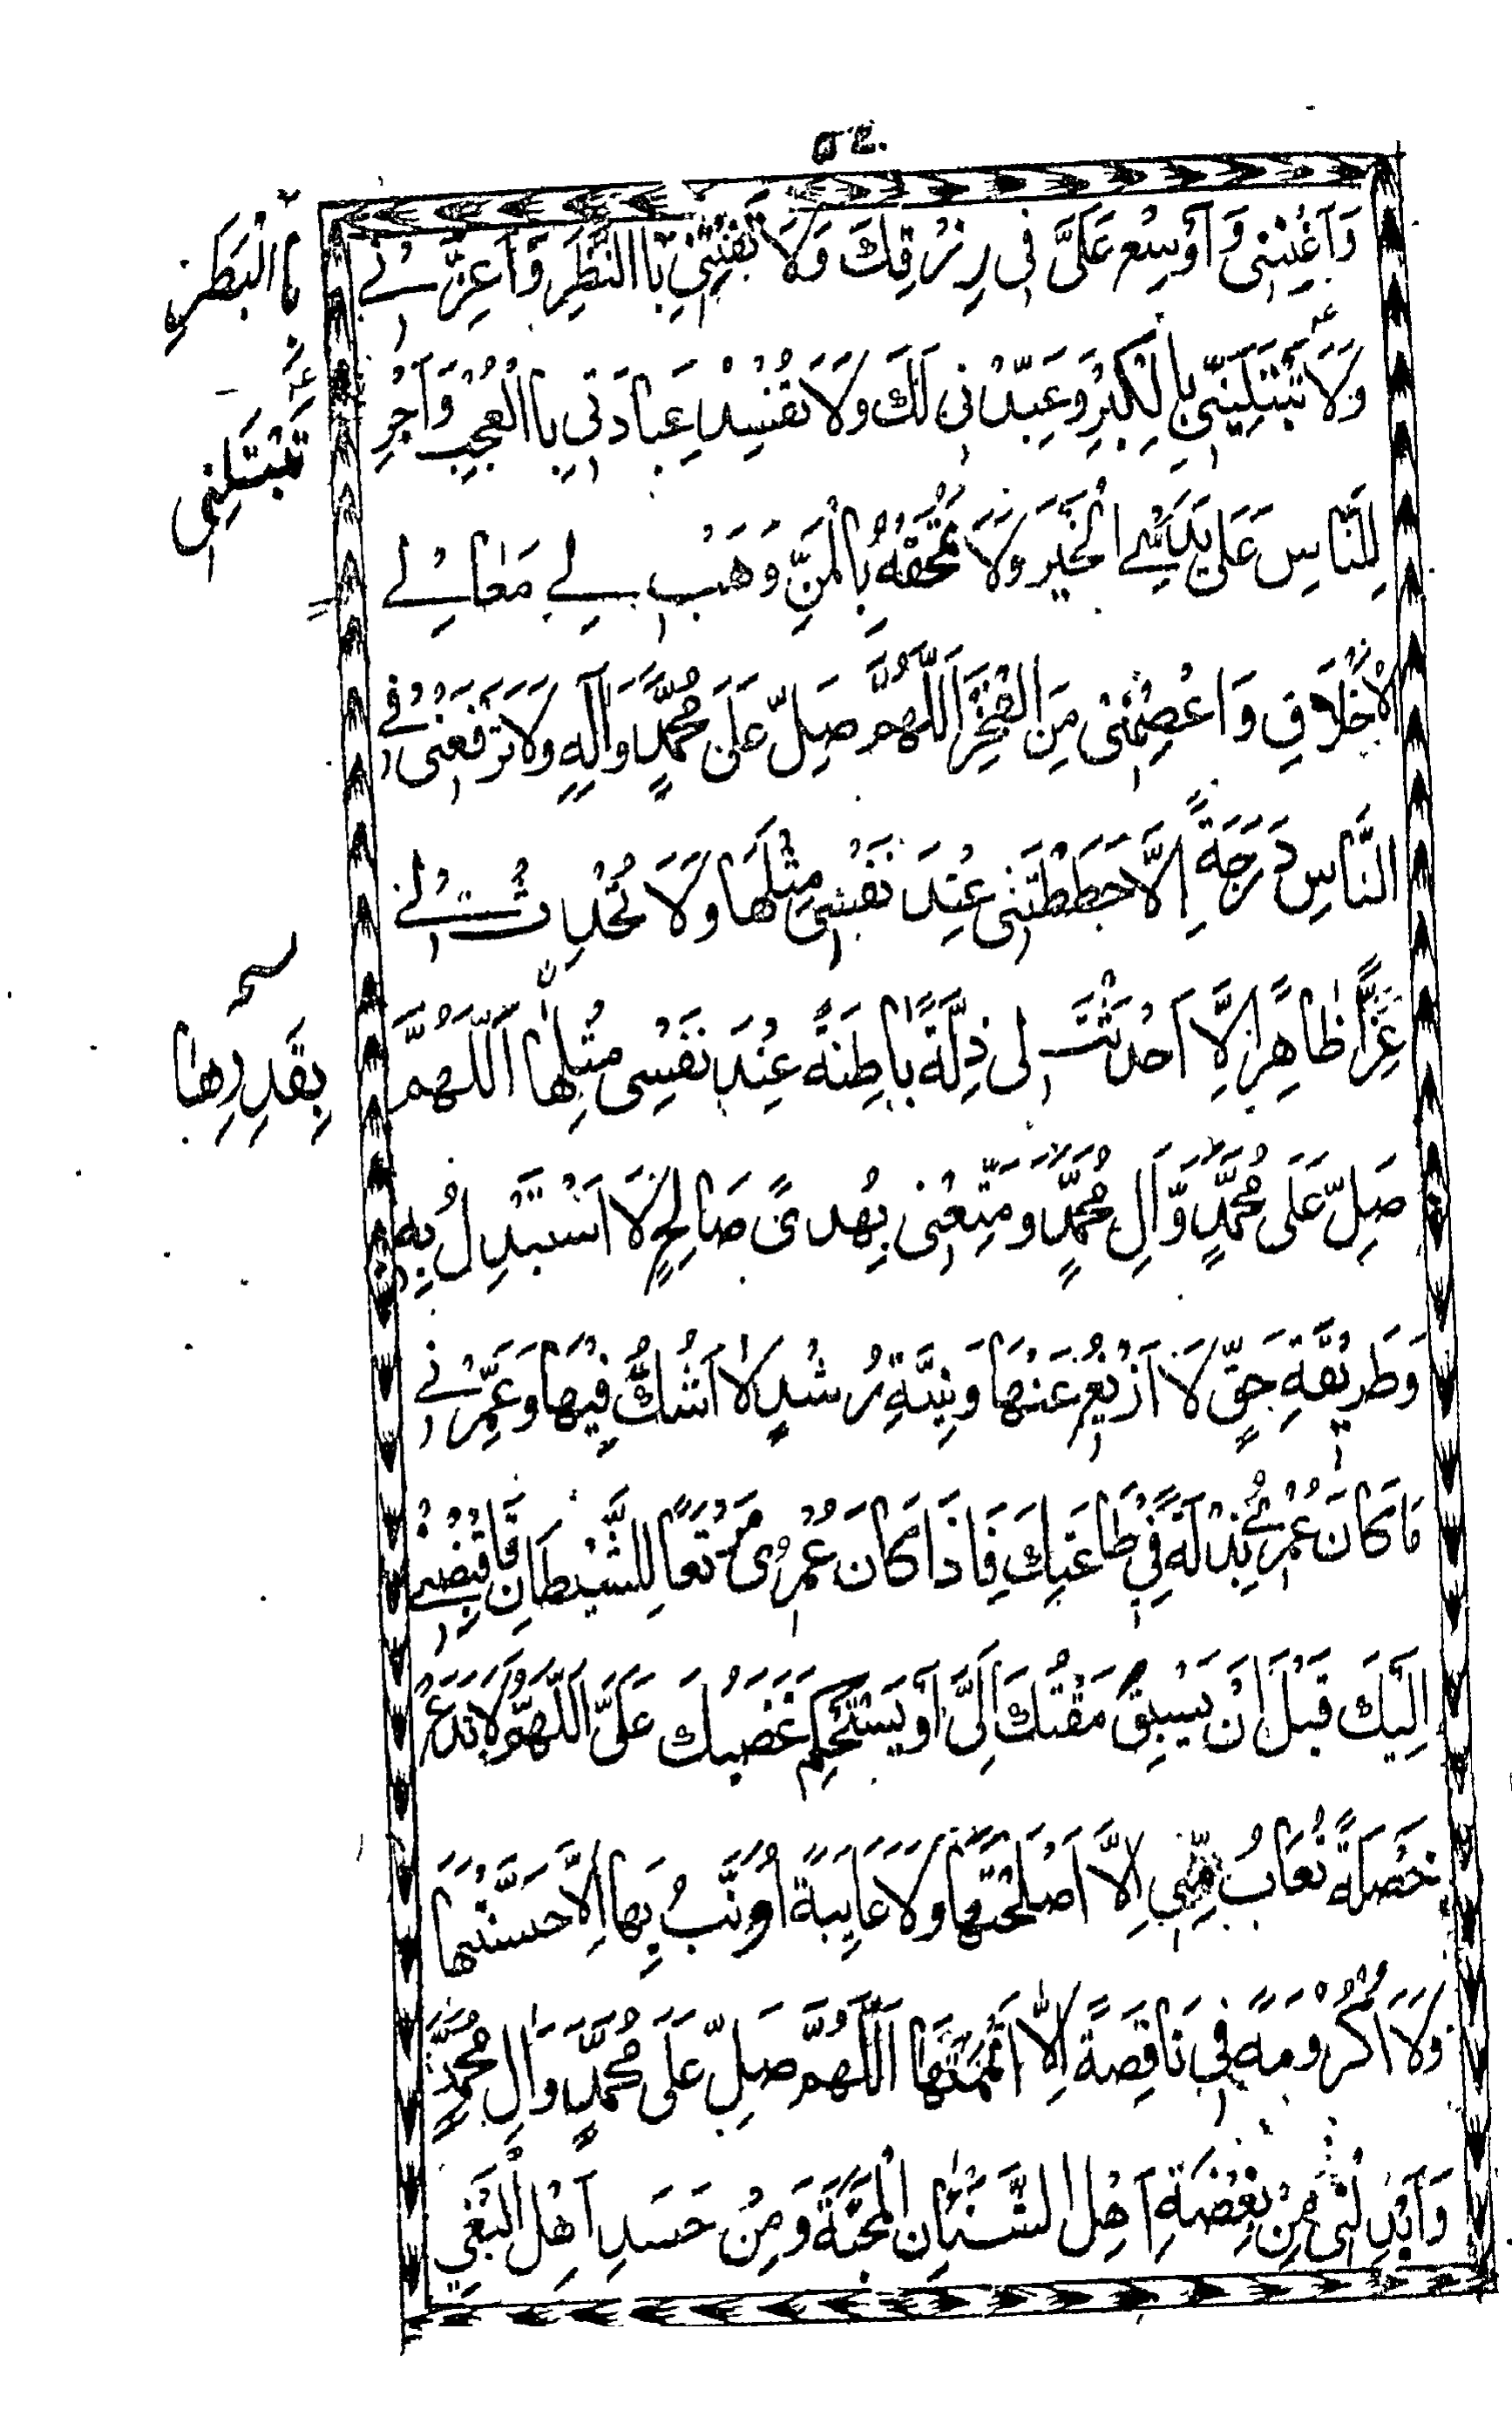 ٥٤
وَاَغْنِنِیْ وَ اَوْسِعْ عَلَیَّ فِی رِزْقِكَ وَلَا تَفْتِنِّیْ بِاالنَّظَرِ وَاَعِزَّنِیْ
وَلَا تَبْتَلِیَنِّیْ بِالْكِبْرِ وَعَبِّدْنِی لَكَ وَلَا تُفْسِدْ عِبَادَتِی بِاالْعُجْبِ وَاَجْرِ
لِلنَّاسِ عَلٰی یَدَیَّ الْخَیْرَ وَلَا تَمْحَقْهُ بِالْمَنِّ وَهَبْ لِی مَعَالِیْ
الْاَخْلَاقِ وَاعْصِمْنِی مِنَ الْفَخْرِ اَللّٰهُمَّ صَلِّ عَلٰی مُحَمَّدٍ وَاٰلِهِ وَلَا تَرْفَعْنِی فِی
النَّاسِ دَرَجَةً اِلَّا حَطَطْتَنِی عِنْدَ نَفْسِی مِثْلَهَا وَلَا تُحْدِثْ لِیْ
عِزًّا ظَاهِرًا اِلَّا اَحْدَثْتَ لِی ذِلَّةً بَاطِنَةً عِنْدَ نَفْسِی مِثْلِهَا اَللّٰهُمَّ
صَلِّ عَلٰی مُحَمَّدٍ وَّاٰلِ مُحَمَّدٍ وَمَتِّعْنِی بِهُدیً صَالِحٍ لَا اَسْتَبْدِلُ بِهٖ
وَطَرِیْقَةِ حَقٍّ لَا اَزِیْغُ عَنْهَا وَنِیَّةِ رُشْدٍ لَا اَشُكُّ فِیْهَا وَعَمِّرْنِیْ
مَا كَانَ عُمْرِیْ بِذْلَةً فِی طَاعَتِكَ فَاِذَا كَانَ عُمْرِی مَرْتَعًا لِلشَّیْطَانِ فَاقْبِضْنِیْ
اِلَیْكَ قَبْلَ اَنْ یَسْبِقَ مَقْتُكَ اِلَیَّ اَوْ یَسْتَحْكِمَ غَضَبُكَ عَلَیَّ اَللّٰهُمَّ لَا تَدَعْ
خَصْلَةً تُعَابُ مِنِّی اِلَّا اَصْلَحْتَهَا وَلَا عَایِبَةً اُوَنَّبُ بِهَا اِلَّا حَسَّنْتَهَا
وَلَا اُكْرُوْمَةً فِیَّ نَاقِصَةً اِلَّا اَتْمَمْتَهَا اَللّٰهُمَّ صَلِّ عَلٰی مُحَمَّدٍ وَاٰلِ مُحَمَّدٍ
وَاَبْدِلْنِی مِنْ بِغْضَةِ اَهْلِ الشَّنَاٰنِ الْمَحَبَّةَ وَمِنْ حَسَدِ اَهْلِ الْبَغْیِ
بِاالْبَطَرِ
تَبْتَلِنِی
بِقَدَرِهَا